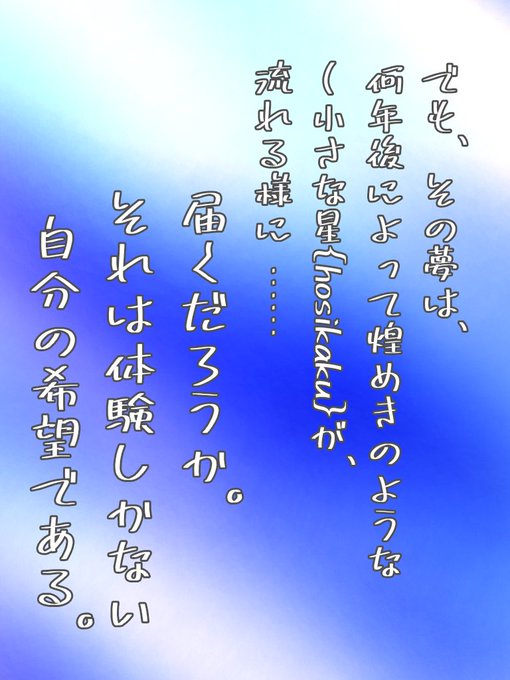 でも、その夢は、
何年後によって煌めきのような
(小さな星{hosikaku}が、
流れる様に……
届くだろうか。
それは体験しかない
自分の希望である。